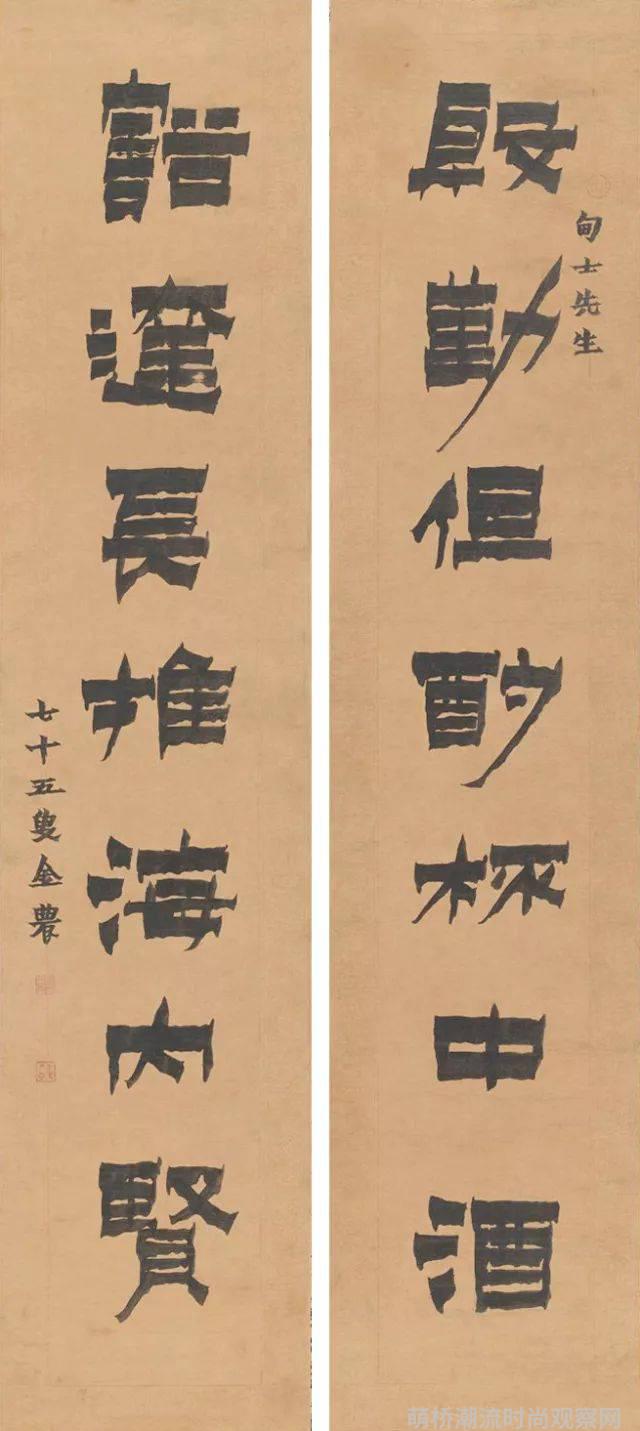 甸士先生
殷勤但酌杯中酒
豁達長推海內賢
七十五叟金農
萌桥潮流时尚观察网